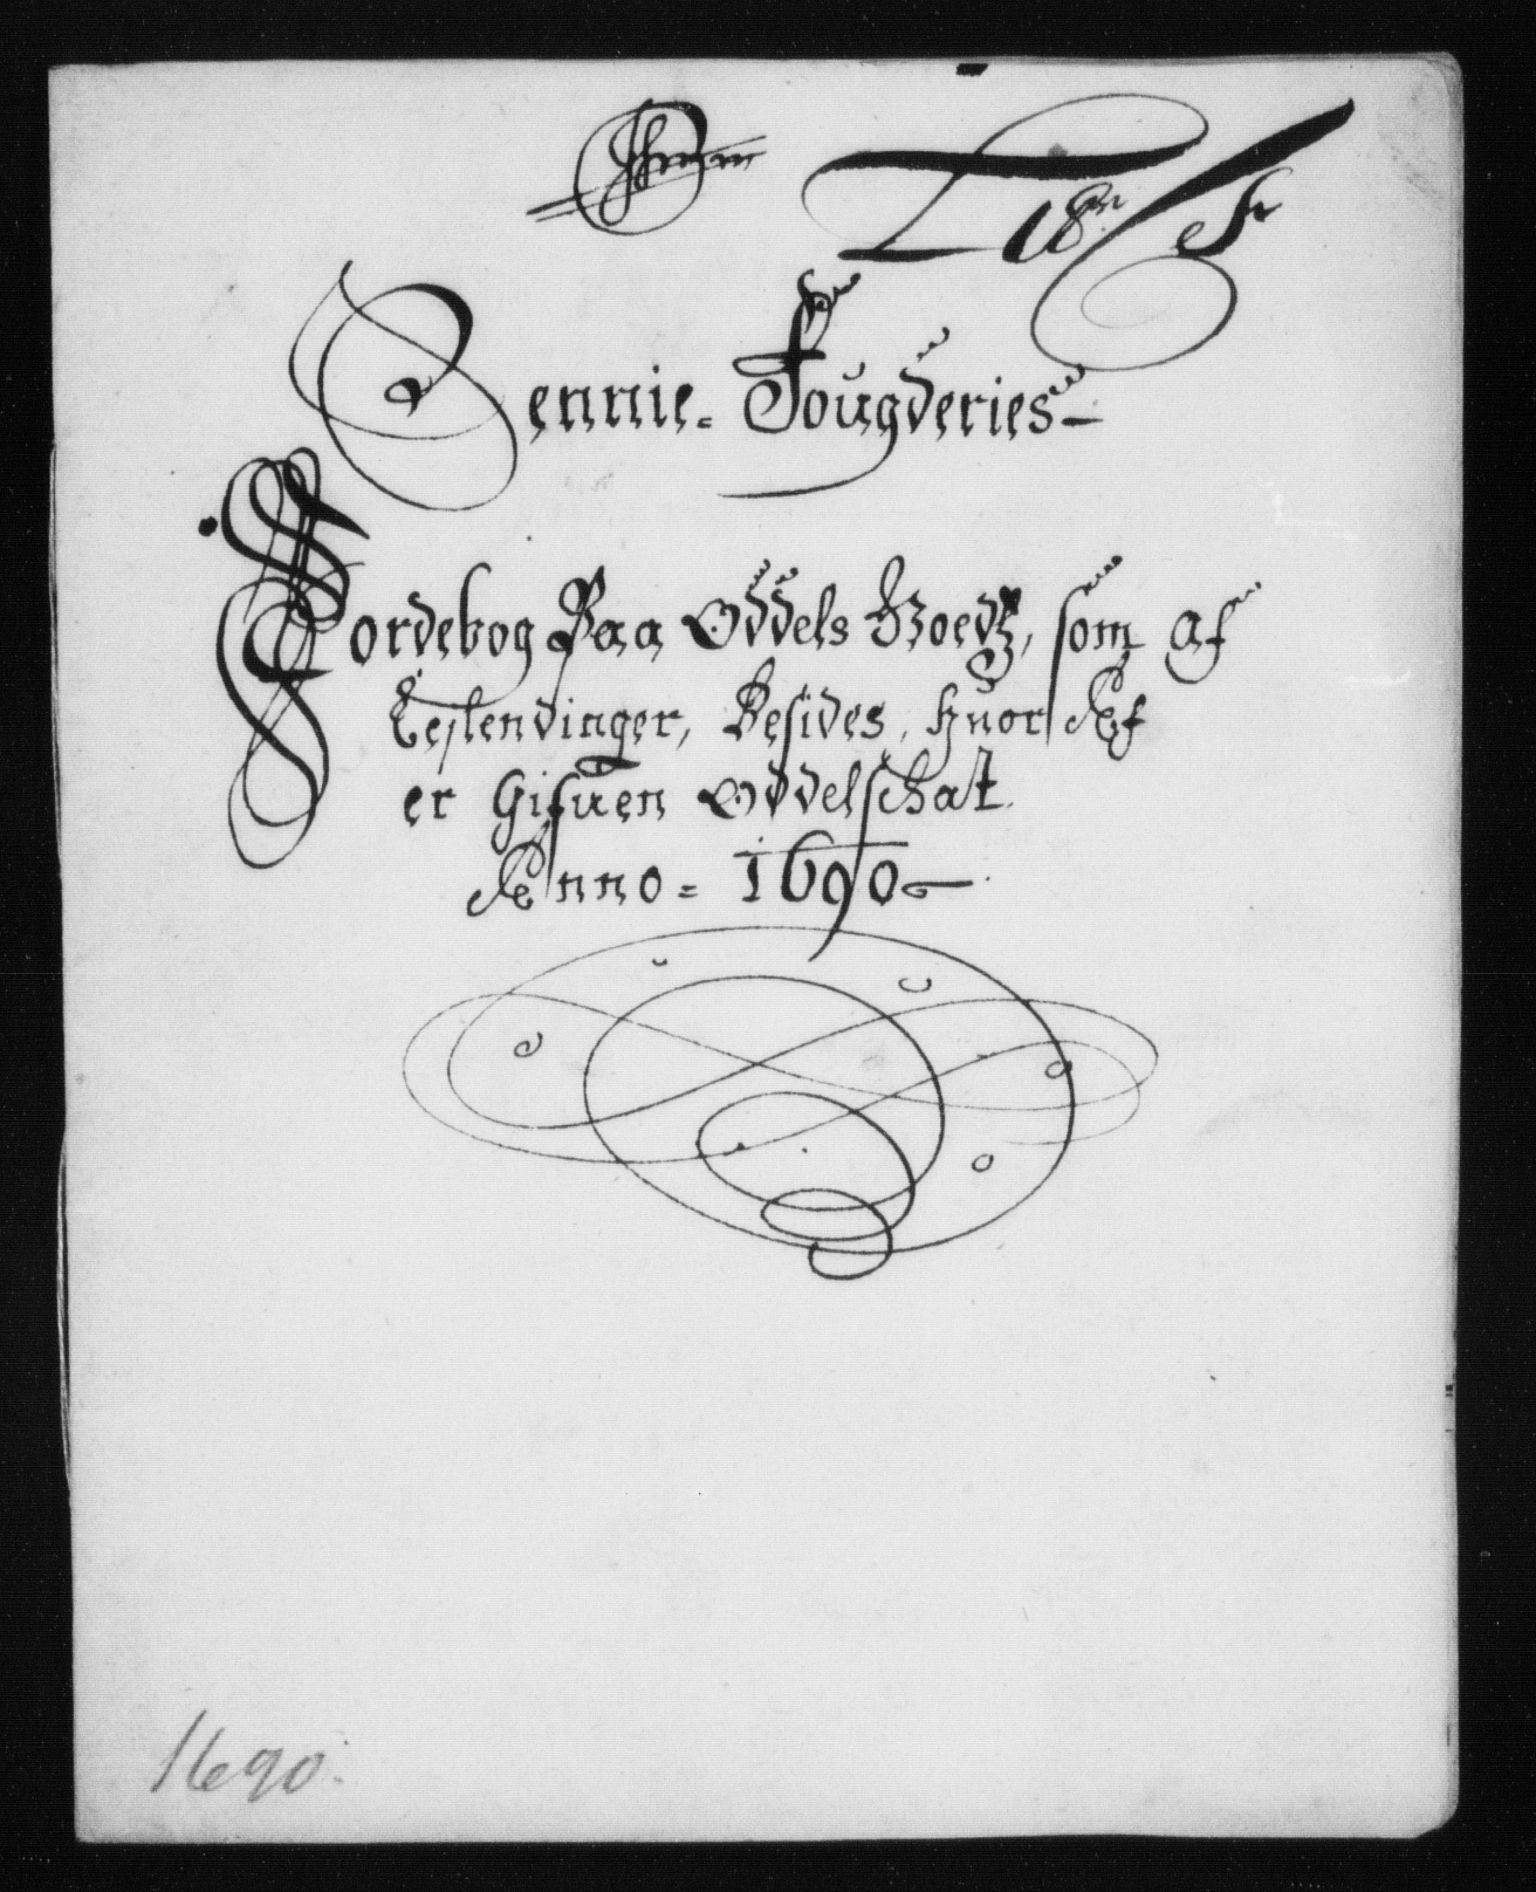 Sennie= Fougderies
Jordebog Paa Oddels Goedtz, som af
Leylendinger, Besides, huor Af
er Gifuen Oddelschat.
Anno = 1690
1690.